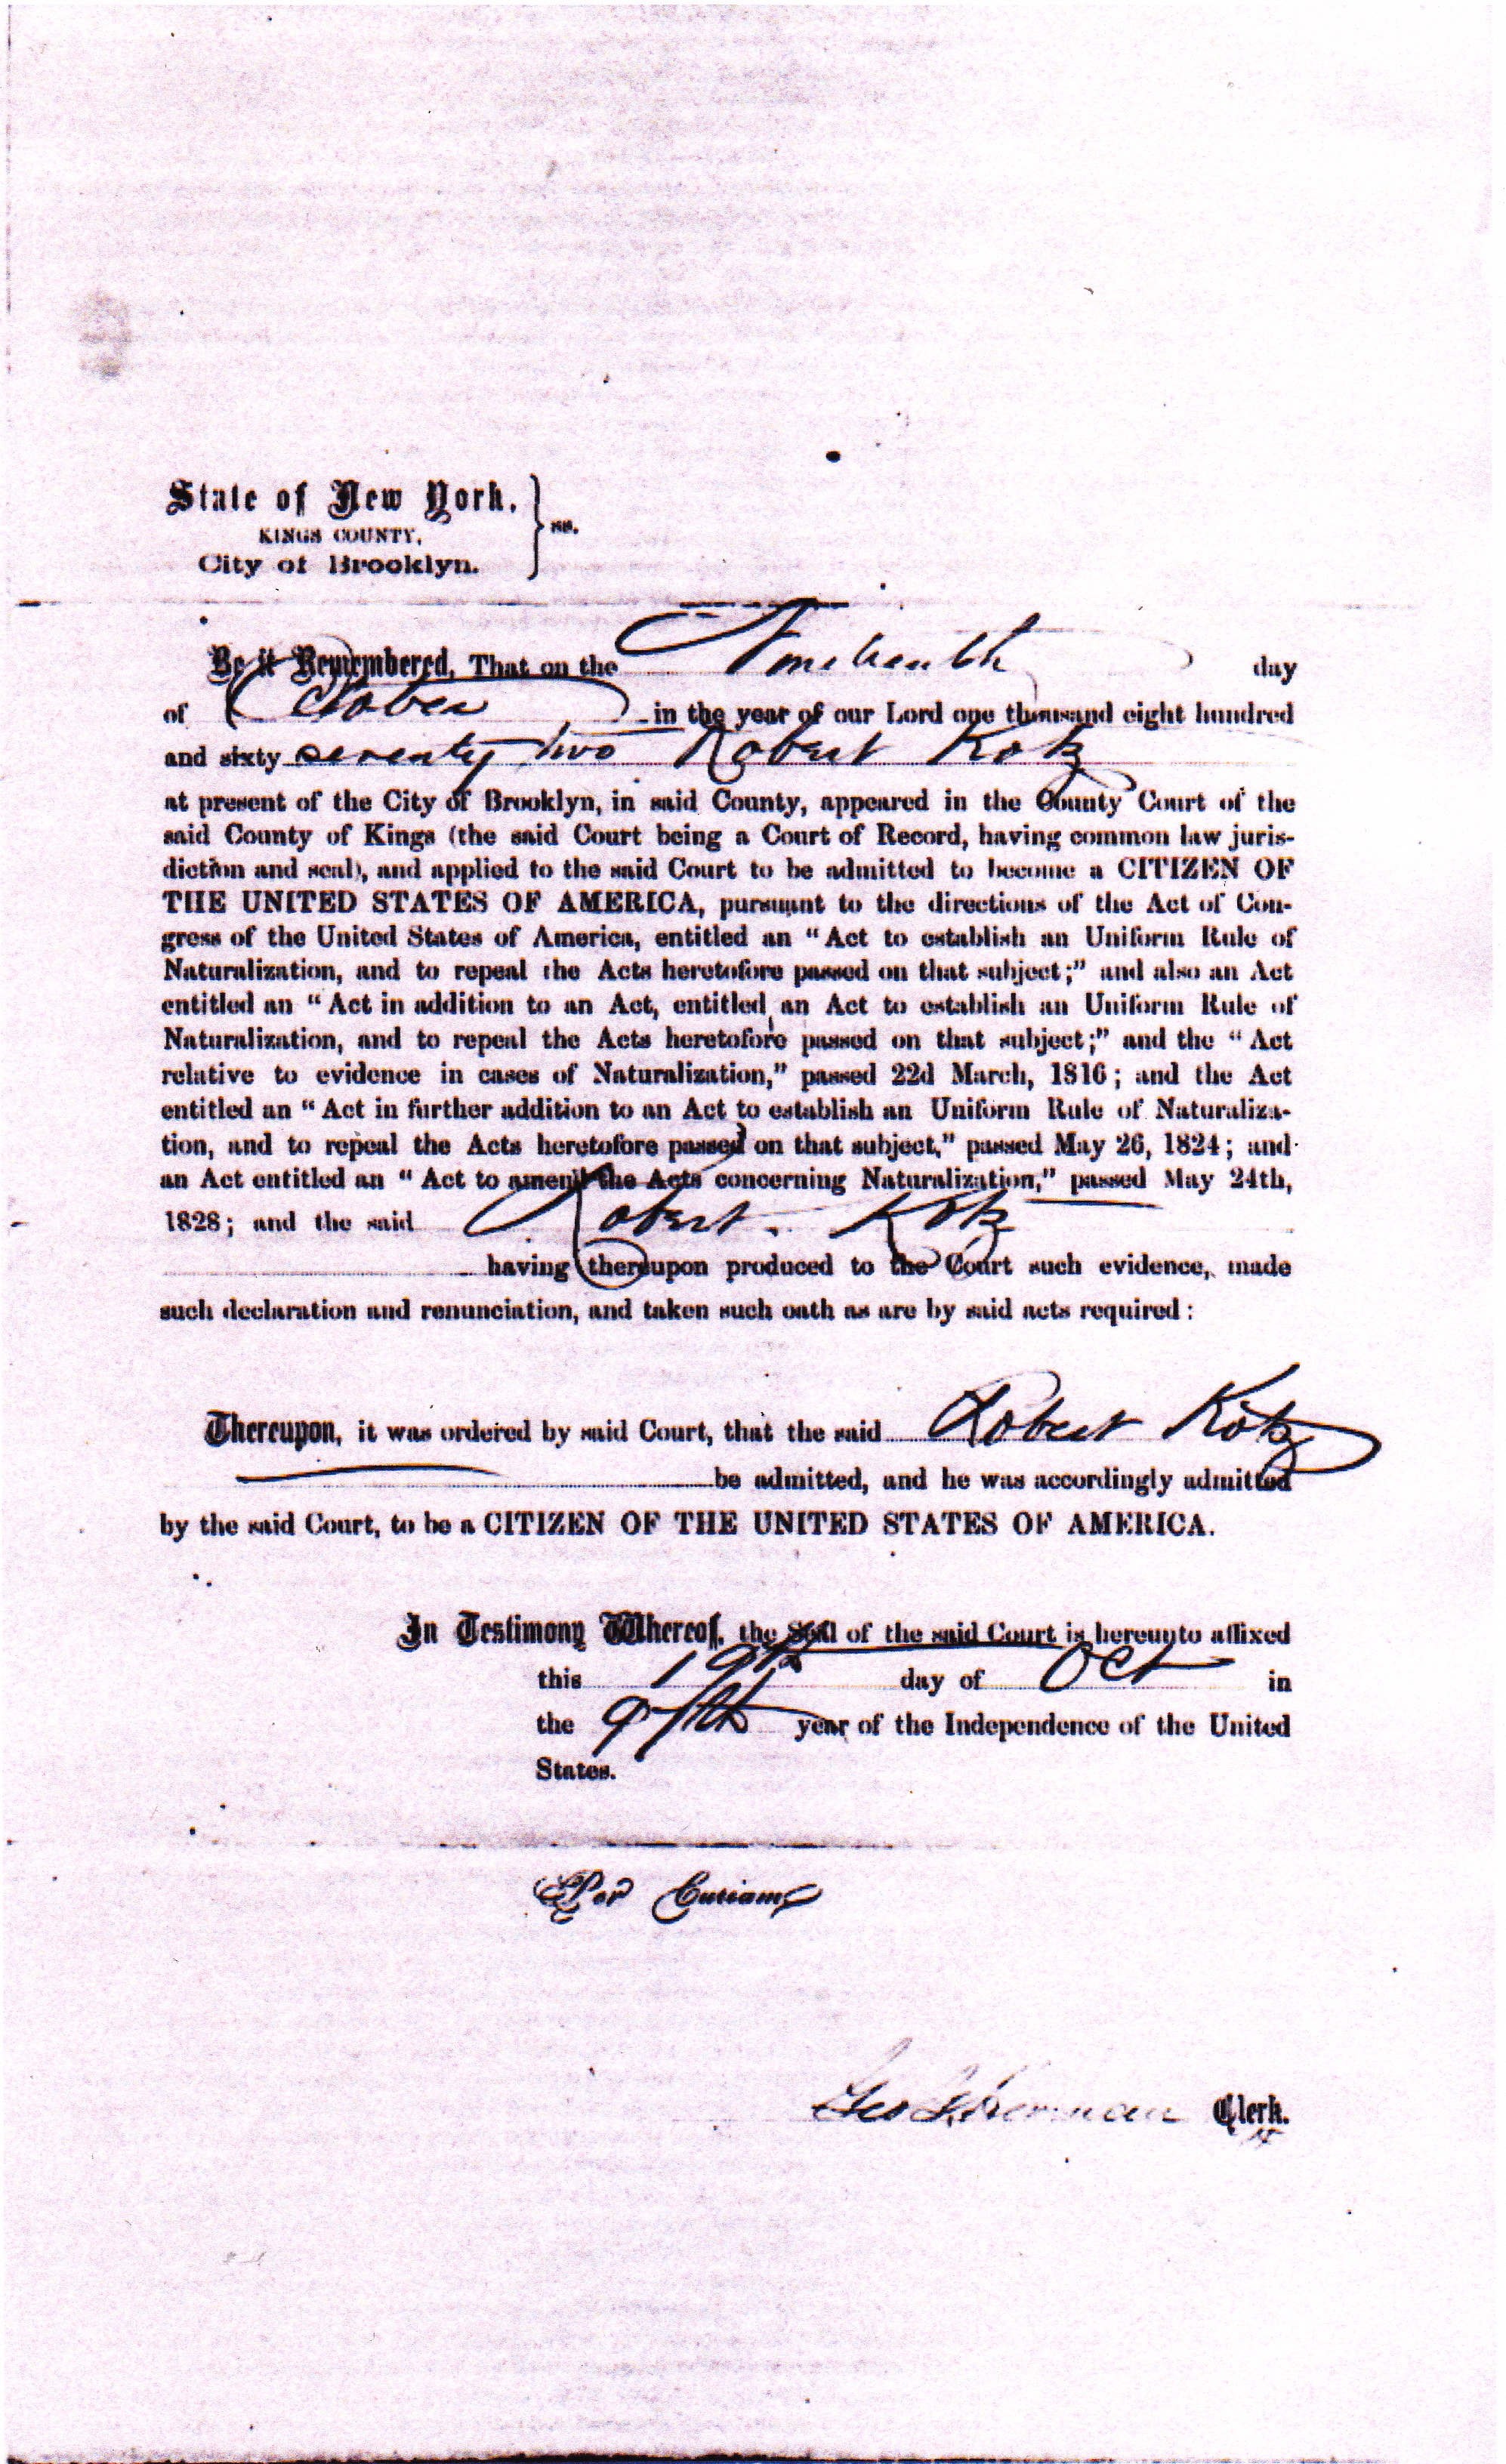 State of New York,
KINGS COUNTY, } ss.
City of Brooklyn.
Be it Remembered, That on the Nineteenth day
of October in the year of our Lord one thousand eight hundred
and sixty seventy two Robert Kotz
at present of the City of Brooklyn, in said County, appeared in the County Court of the
said County of Kings (the said Court being a Court of Record, having common law juris-
diction and seal), and applied to the said Court to be admitted to become a CITIZEN OF
THE UNITED STATES OF AMERICA, pursuant to the directions of the Act of Con-
gress of the United States of America, entitled an “Act to establish an Uniform Rule of
Naturalization, and to repeal the Acts heretofore passed on that subject;” and also an Act
entitled an “Act in addition to an Act, entitled an Act to establish an Uniform Rule of
Naturalization, and to repeal the Acts heretofore passed on that subject;” and the “Act
relative to evidence in cases of Naturalization,” passed 22d March, 1816; and the Act
entitled an “Act in further addition to an Act to establish an Uniform Rule of Naturaliza-
tion, and to repeal the Acts heretofore passed on that subject,” passed May 26, 1824; and
an Act entitled an “Act to amend the Acts concerning Naturalization,” passed May 24th,
1828; and the said Robert Kotz
having thereupon produced to the Court such evidence, made
such declaration and renunciation, and taken such oath as are by said acts required:
Thereupon, it was ordered by said Court, that the said Robert Kotz
be admitted, and he was accordingly admitted
by the said Court, to be a CITIZEN OF THE UNITED STATES OF AMERICA.
In Testimony Whereof, the Seal of the said Court is hereunto affixed
this 19th day of Oct in
the 97th year of the Independence of the United
States.
Per Curiam,
Geo Clerk.